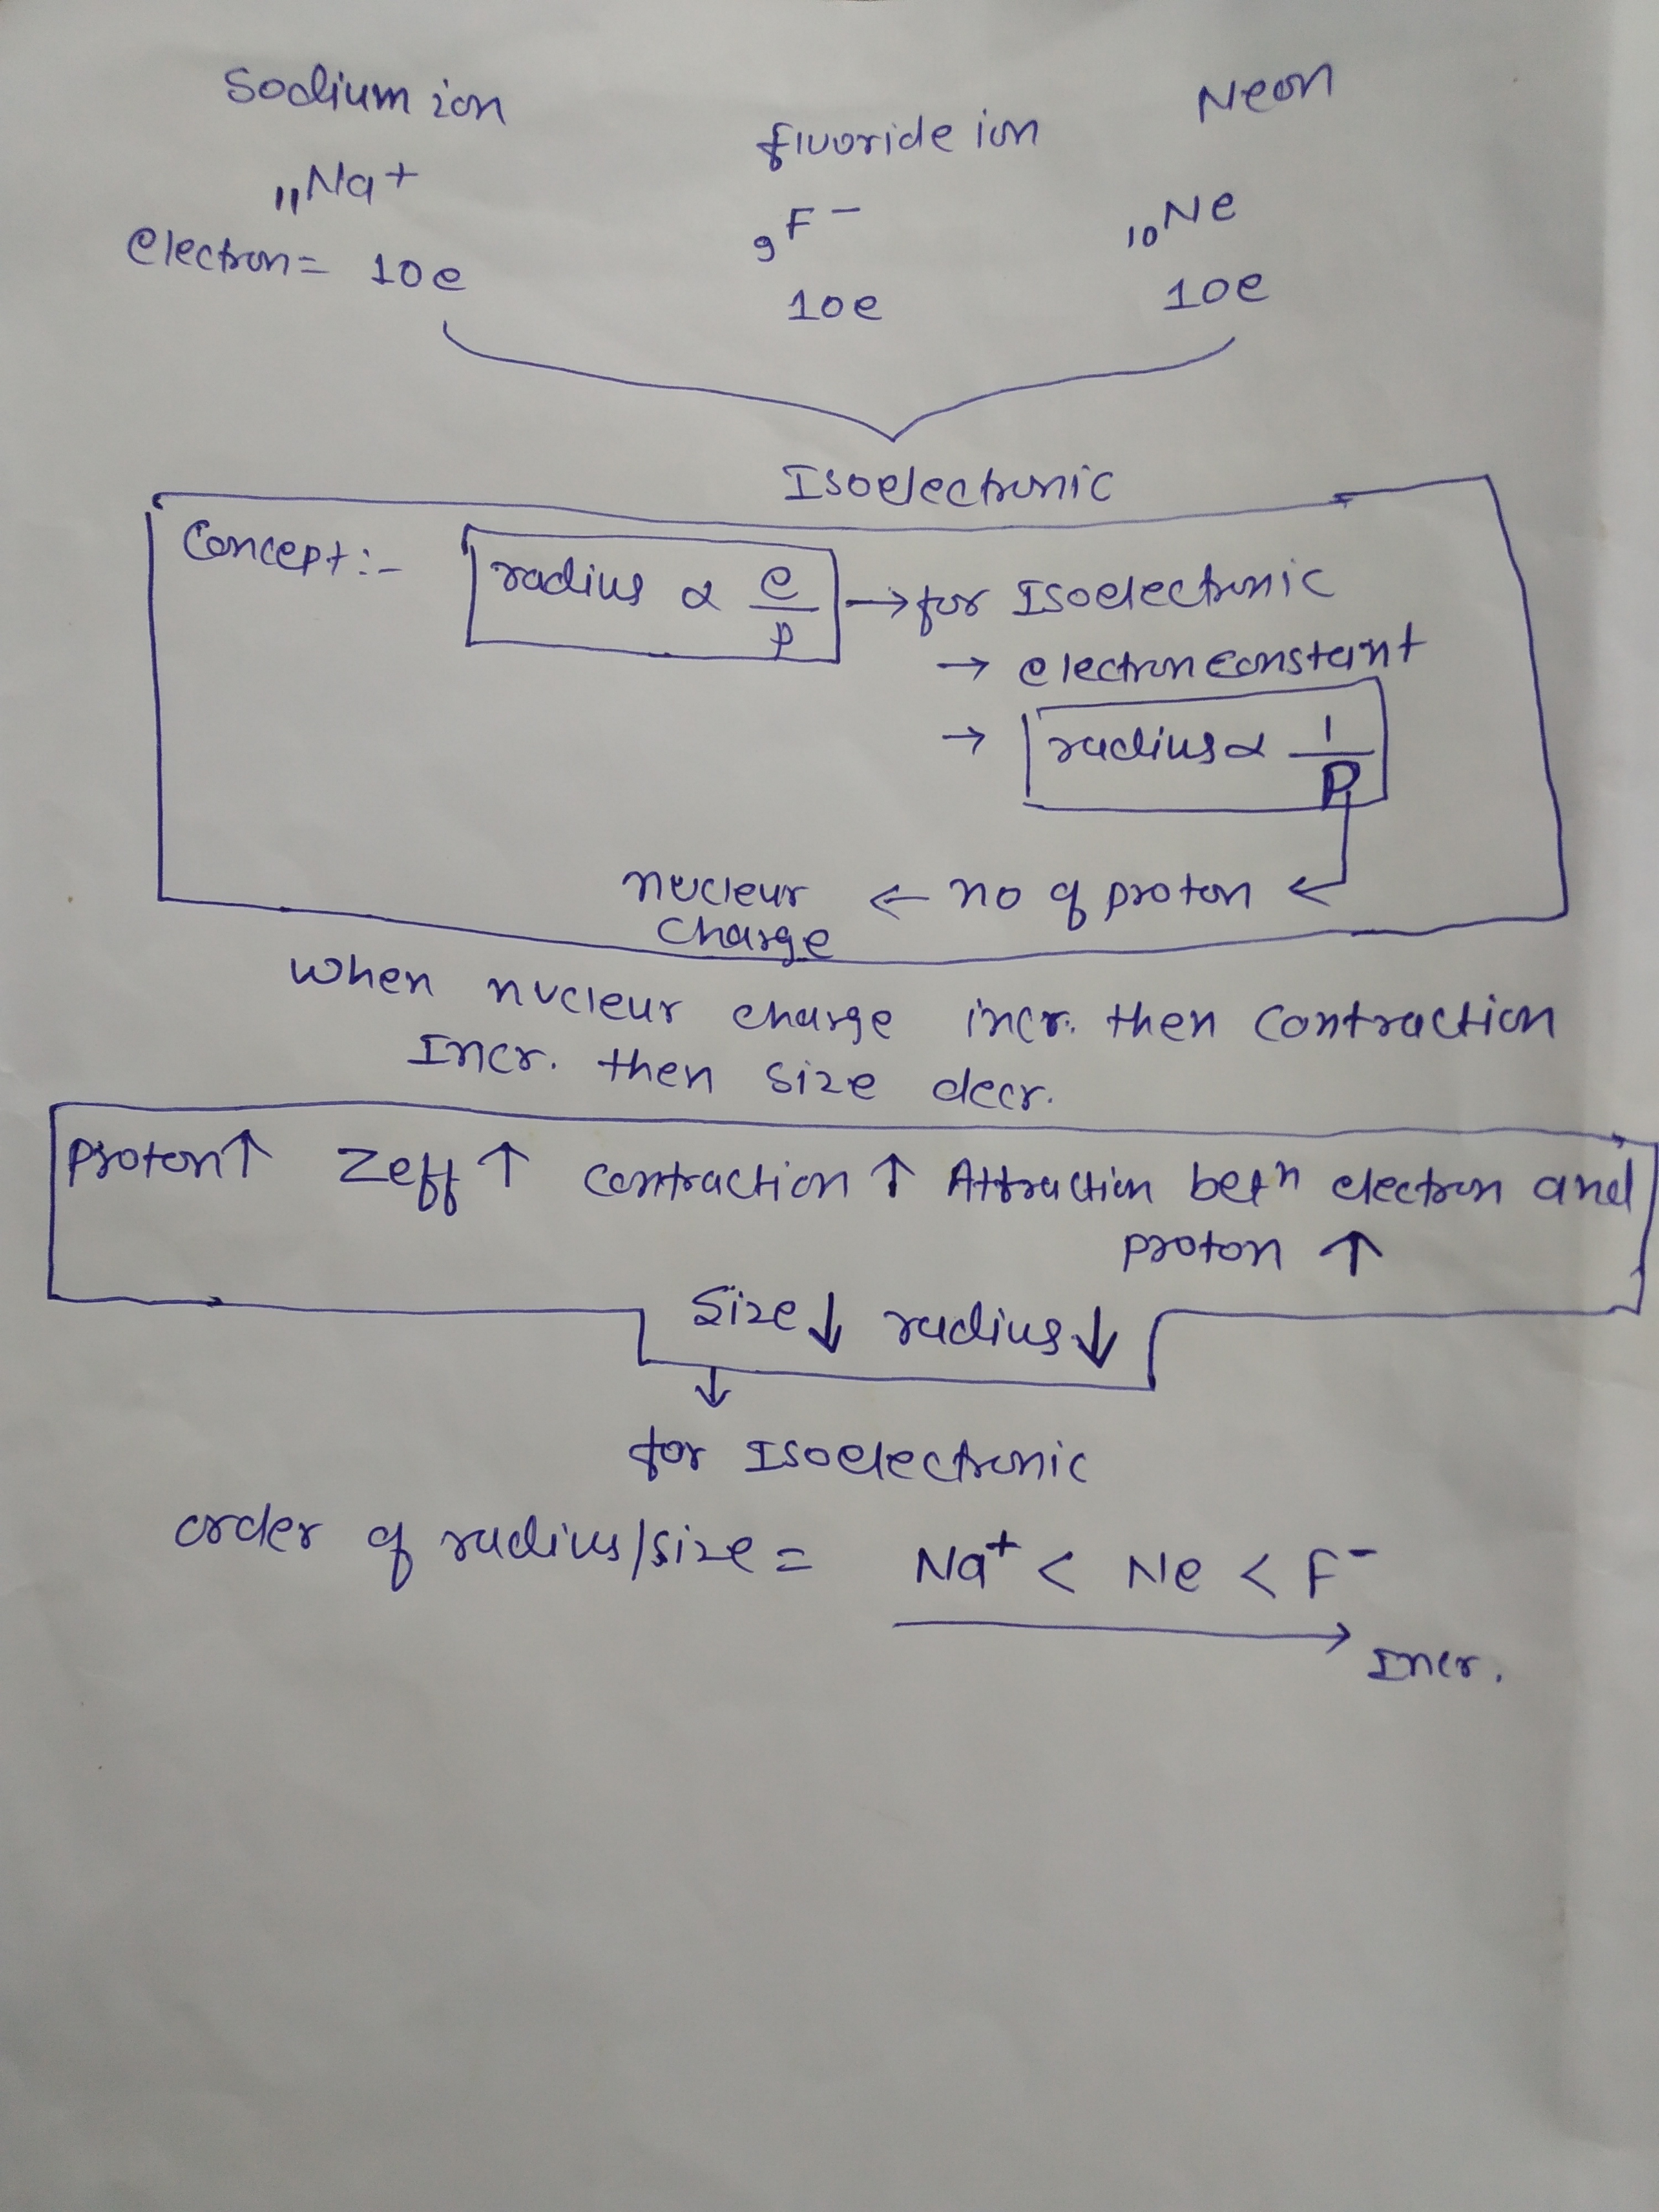 Sodium ion fluoride ion Neon
₁₁Na⁺ ₉F⁻ ₁₀Ne
Electron = 10e 10e 10e
Isoelectronic
Concept:- radius ∝ e/p → for Isoelectronic
→ electron constant
→ radius ∝ 1/P
nucleur ← no of proton ←
charge
When nucleur charge incr. then contraction
Incr. then size decr.
Proton↑ Zeff↑ contraction↑ Attraction betⁿ electron and
proton ↑
Size↓ radius↓
↓
for Isoelectronic
order of radius/size = Na⁺ < Ne < F⁻
→ Incr.